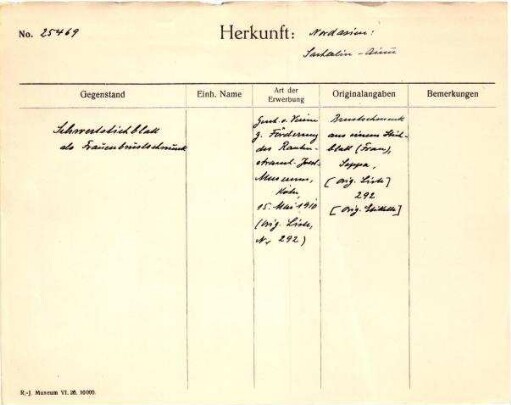 No. 25469
Herkunft: Nordasien:
Sachalin - Ainu
Gegenstand
Einh. Name
Art der
Erwerbung
Originalangaben
Bemerkungen
Schwertstichblatt
als Frauenbrustschmuck
Gesch. v. Verein
z. Förderung
des Rauten-
strauch-Joest-
Museums,
Köln,
15. Mai 1910
(Orig. Liste,
Nr. 292)
Brustschmuck
aus einem Stich-
blatt (Frau),
Seppa,
[Orig. Liste]
292
[Orig. Etikette]
R.-J. Museum VI. 26. 10000.